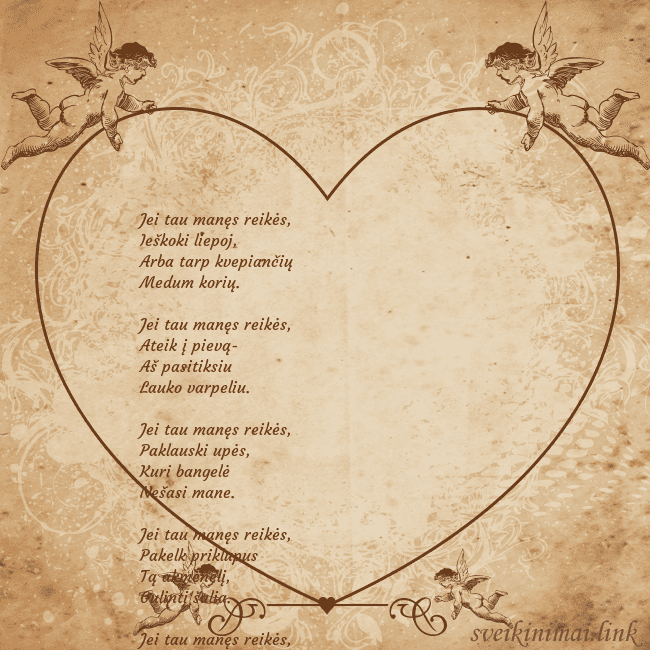 Jei tau manęs reikės,
Ieškoki liepoj,
Arba tarp kvepiančių
Medum korių.
Jei tau manęs reikės,
Ateik į pievą-
Aš pasitiksiu
Lauko varpeliu.
Jei tau manęs reikės,
Paklauski upės,
Kuri bangelė
Nešasi mane.
Jei tau manęs reikės,
Pakelk priklupus
Tą akmenėlį,
Gulintį šalia.
Jei tau manęs reikės,
sveikinimai.link